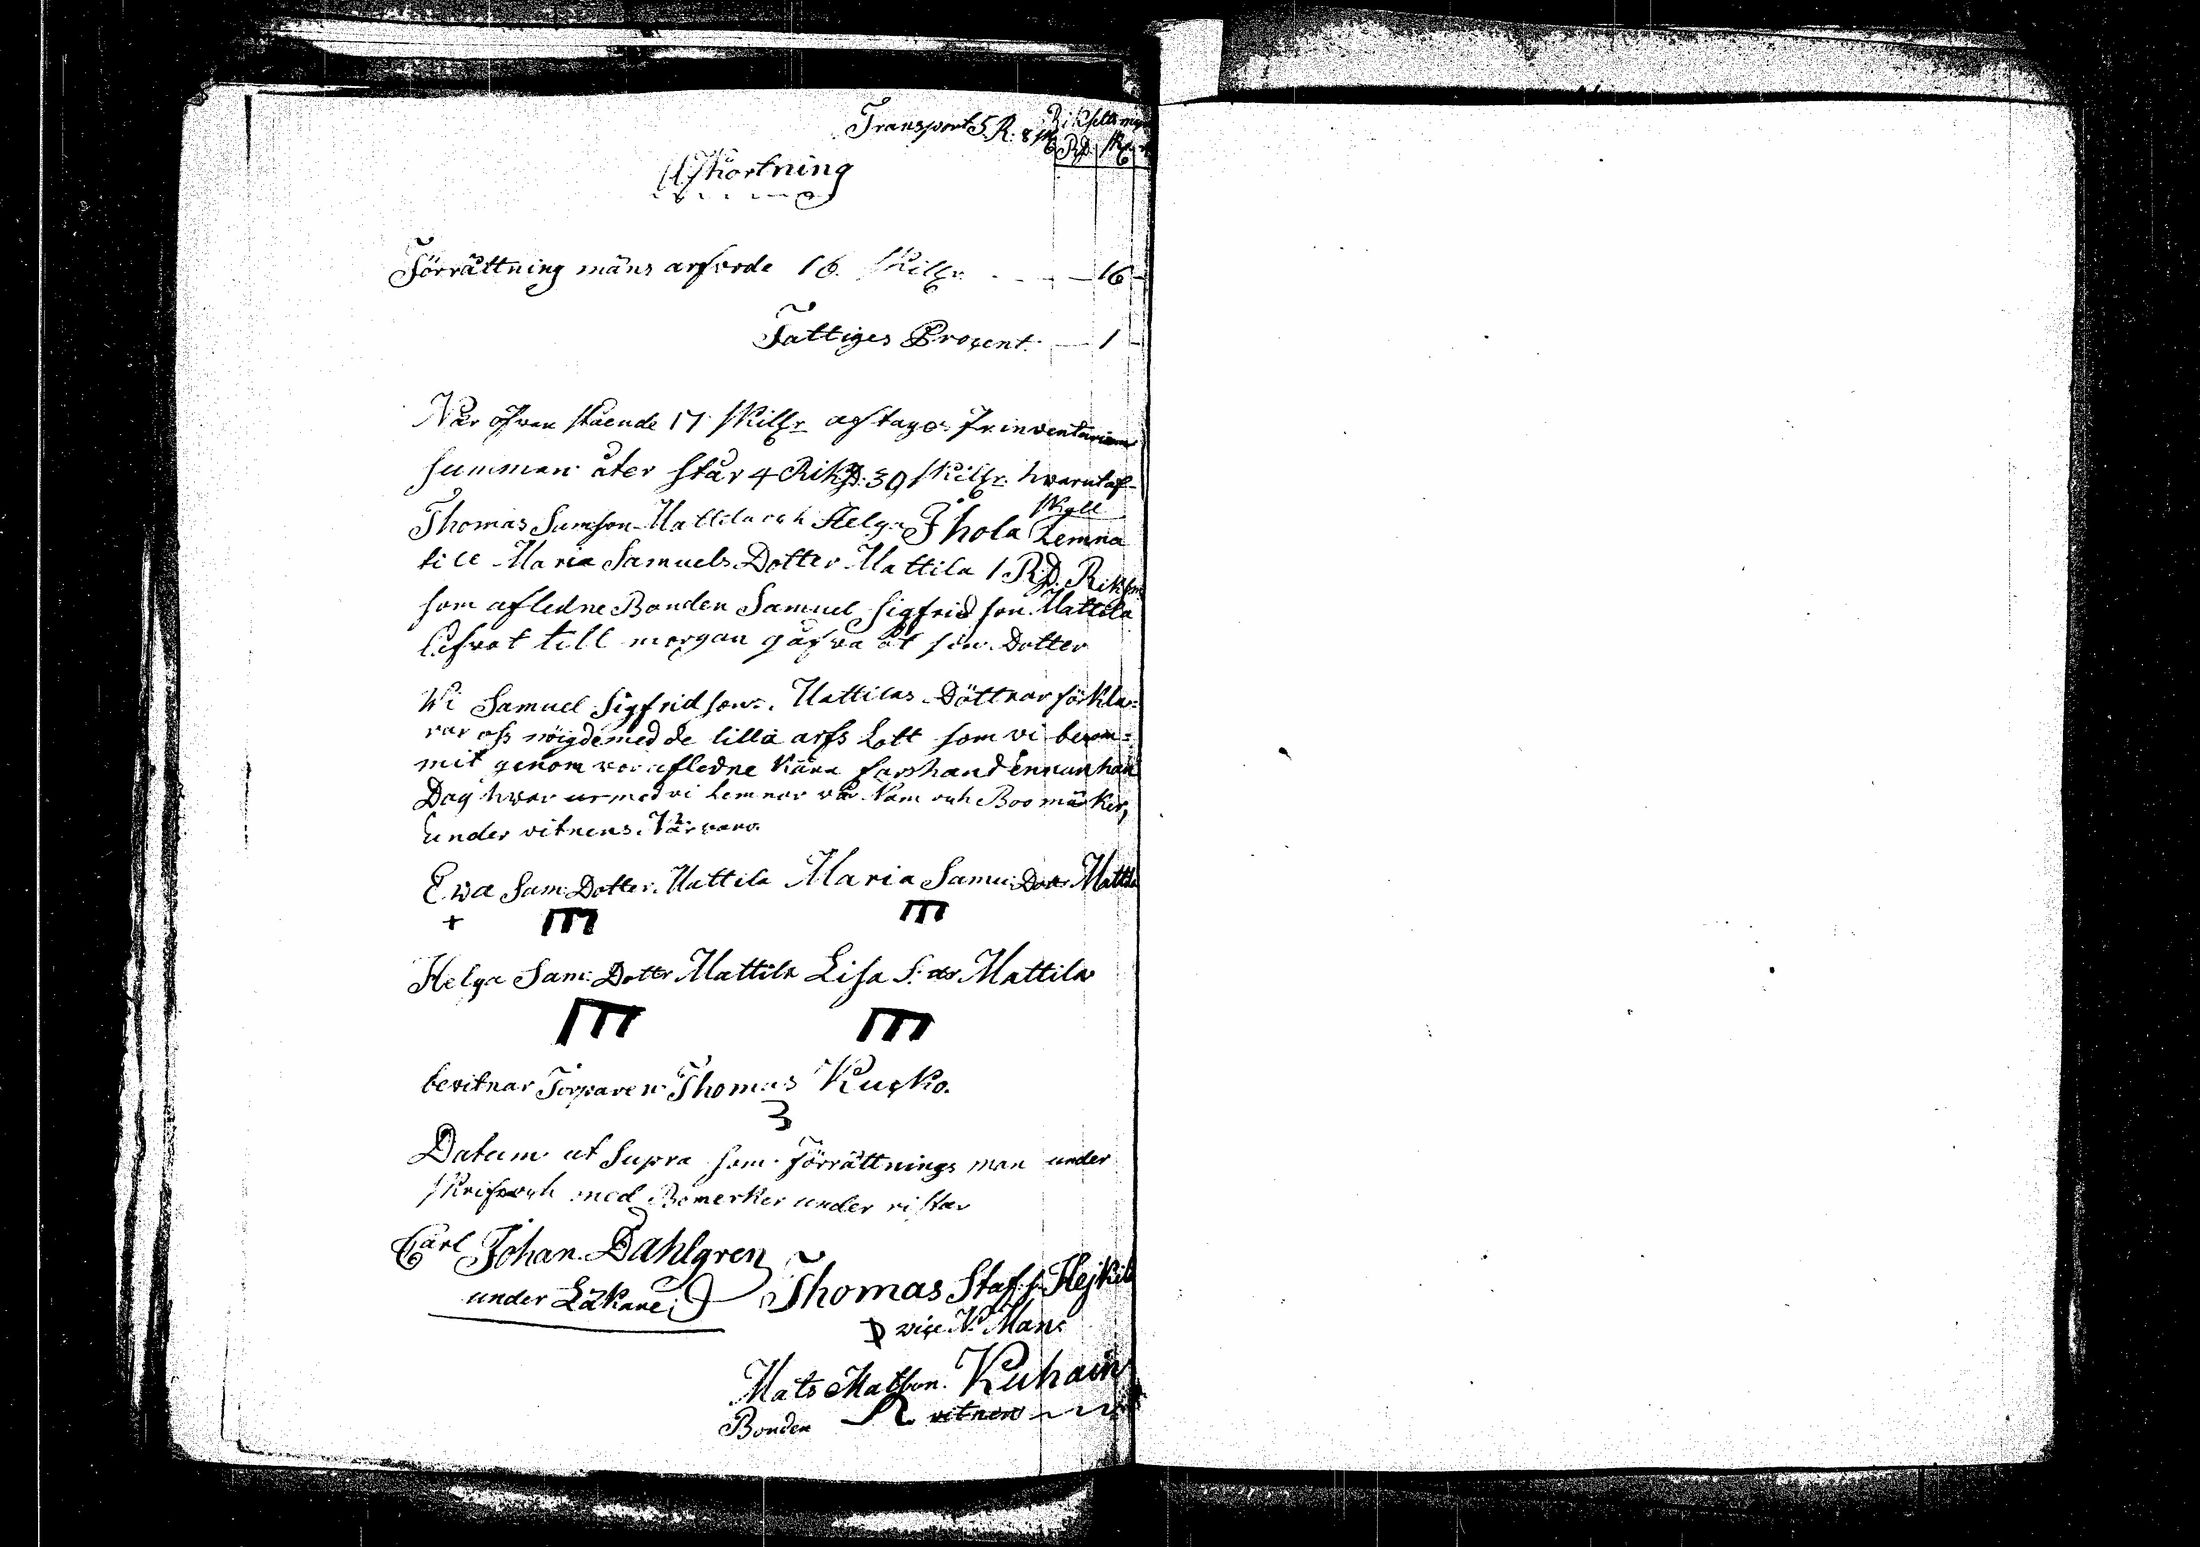 Transport 5. R. 8 sk
Rd sk
Afkortning
Förrättning mäns arfvode 16. skillr. — 16 —
Fattiges Procent. — 1 —
När ofvan stående 17 skillr afftages fr inventarium
summan åter står 4 Rik.d. 39 skillr. hvarutaf
Thomas Samson Mattila och Helga Ihola skall Lemna
till Maria Samuels Dotter Mattila 1 Rd. Riksm
som afledne Bonden Samuel Sigfridson Mattila
lifvat till morgan gåfva åt sin Dotter
Vi Samuel Sigfridsons Mattilas Döttrar förkla=
rar oss nöigde med de lilla arfs Lott som vi
mit genom vor afledne kära fars hand ennan han
Dog hwar med vi Lemnar vår Nam och Boomärker,
under vitnens Närvaro.
Ewa Sam: Dotter Mattila Maria Samu: Dotr Mattila
+
Helga Sam: Dottr Mattila Lisa S: dr Mattila
bevitnar Torparen Thomas Kucko.
Datum ut Supra som Förrättnings man under
skrifver och med Bomerker under ristar
Carl Johan Dahlgren
under Läkare;
Thomas Staf:s: Hejkilä
vice N. Man:
Mats Matson Kuhain
Bonden vitnen